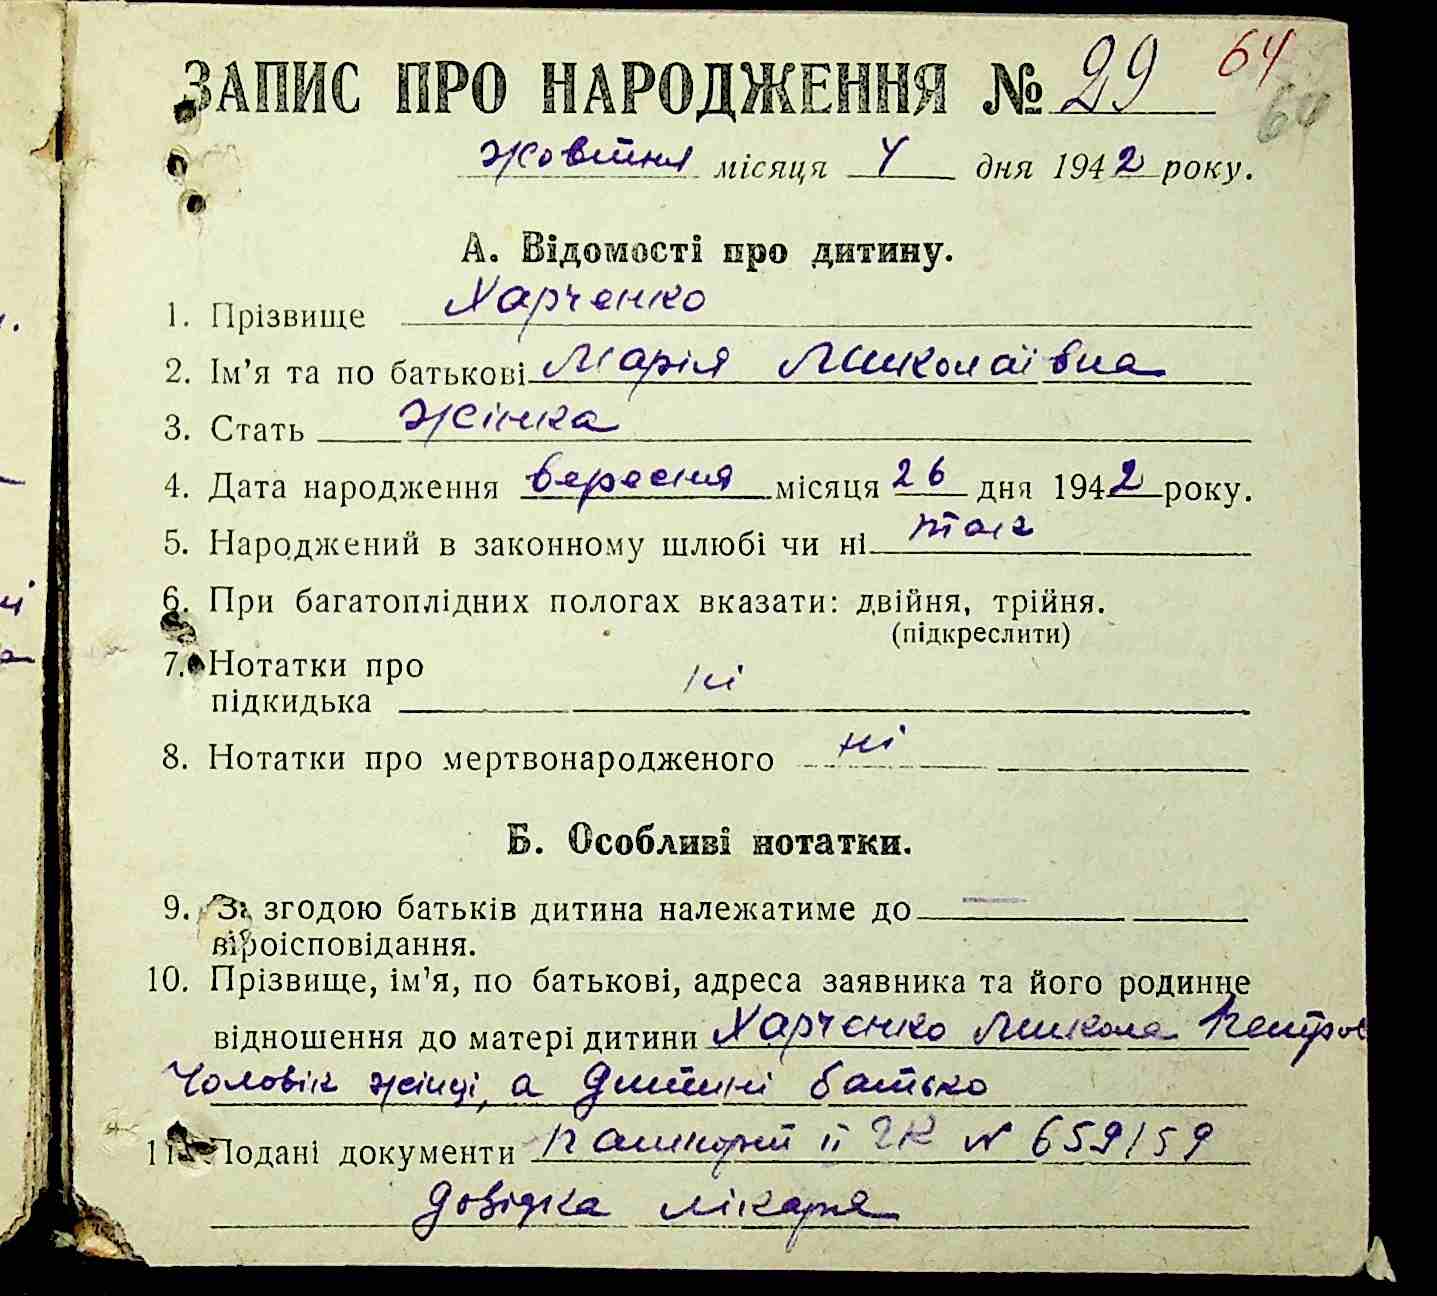 ЗАПИС ПРО НАРОДЖЕННЯ № 29 64
64
жовтня місяця 4 дня 1942 року.
А. Відомості про дитину.
1. Прізвище Харченко
2. Ім'я та по батькові Марія Миколаївна
3. Стать жінка
4. Дата народження вересня місяця 26 дня 1942 року.
5. Народжений в законному шлюбі чи ні так
6. При багатоплідних пологах вказати: двійня, трійня.
(підкреслити)
7. Нотатки про
підкидька ні
8. Нотатки про мертвонародженого ні
Б. Особливі нотатки.
9. За згодою батьків дитина належатиме до
віроісповідання.
10. Прізвище, ім'я, по батькові, адреса заявника та його родинне
відношення до матері дитини Харченко Микола Петров
Чоловік жінці, а дитині батько
11. Подані документи пашпорт ІІ ГК № 659159
довідка лікаря